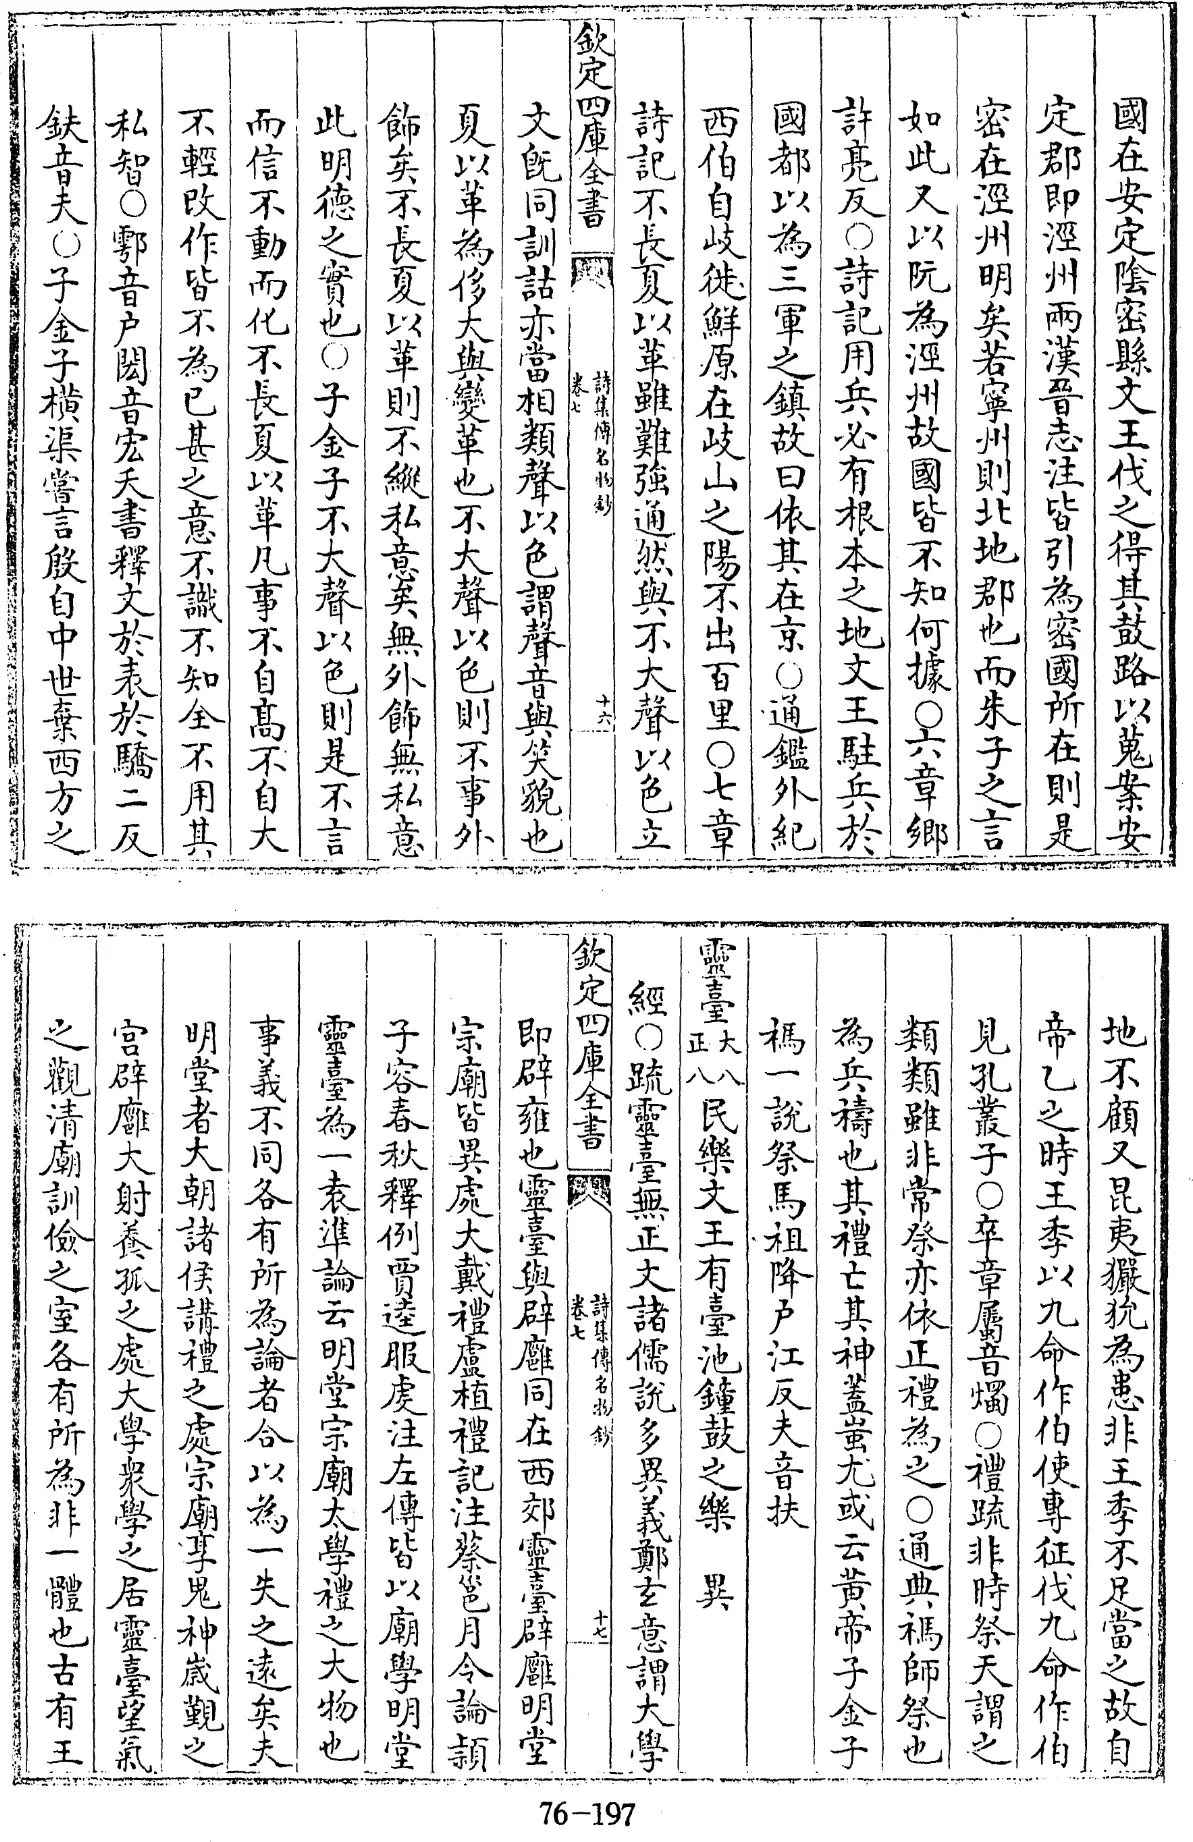 國在安定陰密縣文王伐之得其鼓路以蒐案安
定郡即涇州兩漢晉志注皆引為密國所在則是
密在涇州明矣若寧州則北地郡也而朱子之言
如此又以阮為涇州故國皆不知何據○六章鄉
許亮反○詩記用兵必有根本之地文王駐兵於
國都以為三軍之鎮故曰依其在京○通鑑外紀
西伯自岐徙鮮原在岐山之陽不出百里○七章
詩記不長夏以革雖難強通然與不大聲以色立
欽定四庫全書
詩集傳名物鈔
卷七
十六
文既同訓詁亦當相類聲以色謂聲音與笑貌也
夏以革為侈大與變革也不大聲以色則不事外
飾矣不長夏以革則不縱私意矣無外飾無私意
此明德之實也○子金子不大聲以色則是不言
而信不動而化不長夏以革凡事不自高不自大
不輕改作皆不為已甚之意不識不知全不用其
私智○鄠音户閎音宏夭書釋文於表於驕二反
鈇音夫○子金子橫渠嘗言殷自中世棄西方之
地不顧又昆夷玁狁為患非王季不足當之故自
帝乙之時王季以九命作伯使專征伐九命作伯
見孔叢子○卒章屬音燭○禮疏非時祭天謂之
類類雖非常祭亦依正禮為之○通典禡師祭也
為兵禱也其禮亡其神蓋蚩尤或云黃帝子金子
禡一說祭馬祖降户江反夫音扶
靈臺大正八八民樂文王有臺池鐘鼓之樂 異
經○疏靈臺無正文諸儒說多異義鄭玄意謂大學
欽定四庫全書
詩集傳名物鈔
卷七
十七
即辟雍也靈臺與辟廱同在西郊靈臺辟廱明堂
宗廟皆異處大戴禮盧植禮記注蔡邕月令論穎
子容春秋釋例賈逵服虔注左傳皆以廟學明堂
靈臺為一袁準論云明堂宗廟太學禮之大物也
事義不同各有所為論者合以為一失之遠矣夫
明堂者大朝諸侯講禮之處宗廟享鬼神歲覲之
宫辟廱大射養孤之處大學衆學之居靈臺望氣
之觀清廟訓儉之室各有所為非一體也古有王
76-197